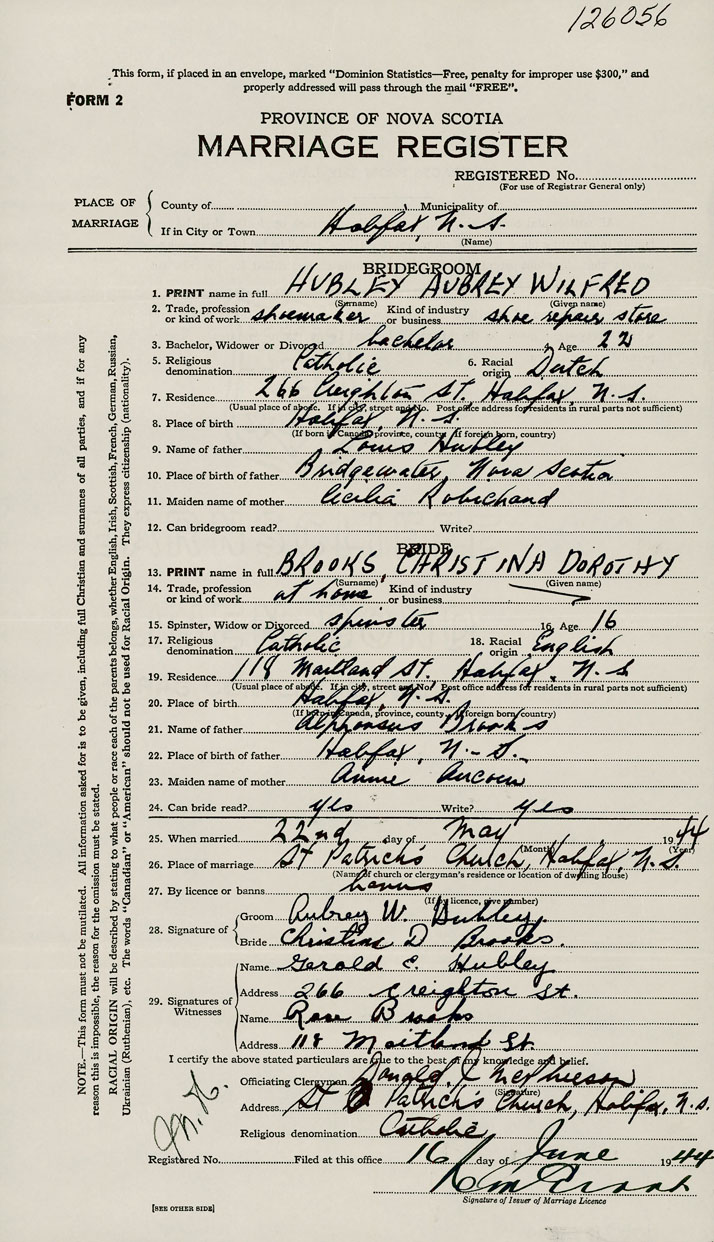 126056
This form, if placed in an envelope, marked “Dominion Statistics—Free, penalty for improper use $300,” and
properly addressed will pass through the mail “FREE”.
FORM 2
PROVINCE OF NOVA SCOTIA
MARRIAGE REGISTER
REGISTERED No.
(For use of Registrar General only)
PLACE OF MARRIAGE
County of Municipality of
If in City or Town Halifax, N.S.
(Name)
BRIDEGROOM
1. PRINT name in full HUBLEY AUBREY WILFRED
(Surname) (Given name)
2. Trade, profession or kind of work shoemaker Kind of industry or business shoe repair store
3. Bachelor, Widower or Divorced bachelor 4. Age 22
5. Religious denomination Catholic 6. Racial origin Dutch
7. Residence 266 Creighton St. Halifax, N.S.
(Usual place of abode. If in city, street and No. Post office address for residents in rural parts not sufficient)
8. Place of birth Halifax, N.S.
(If born in Canada, province, county, If foreign born, country)
9. Name of father Louis Hubley
10. Place of birth of father Bridgewater, Nova Scotia
11. Maiden name of mother Cecilia Robichaud
12. Can bridegroom read? Write?
BRIDE
13. PRINT name in full BROOKS, CHRISTINA DOROTHY
(Surname) (Given name)
14. Trade, profession or kind of work at home Kind of industry or business
15. Spinster, Widow or Divorced spinster 16. Age 16
17. Religious denomination Catholic 18. Racial origin English
19. Residence 118 Maitland St. Halifax, N.S
(Usual place of abode. If in city, street and No. Post office address for residents in rural parts not sufficient)
20. Place of birth Halifax, N.S.
(If born in Canada, province, county, If foreign born, country)
21. Name of father Alphonsus Brooks
22. Place of birth of father Halifax, N.S.
23. Maiden name of mother Annie Aucoin
24. Can bride read? yes Write? yes
25. When married 22nd day of May 1944
(Month) (Year)
26. Place of marriage St Patrick's Church, Halifax, N.S.
(Name of church or clergyman's residence or location of dwelling house)
27. By licence or banns banns
(If by licence, give number)
28. Signature of Groom Aubrey W. Hubley.
Bride Christina D Brooks.
29. Signatures of Witnesses Name Gerald C. Hubley
Address 266 Creighton St.
Name Rose Brooks
Address 118 Maitland St
I certify the above stated particulars are true to the best of my knowledge and belief.
Officiating Clergyman Donald
(Signature)
Address St Patrick's Church, Halifax, N.S.
Religious denomination Catholic
Registered No. Filed at this office 16 day of June 1944
Signature of Issuer of Marriage Licence
[SEE OTHER SIDE]
NOTE.—This form must not be mutilated. All information asked for is to be given, including full Christian and surnames of all parties, and if for any
reason this is impossible, the reason for the omission must be stated.
RACIAL ORIGIN will be described by stating to what people or race each of the parents belongs, whether English, Irish, Scottish, French, German, Russian,
Ukrainian (Ruthenian), etc. The words “Canadian” or “American” should not be used for Racial Origin. They express citizenship (nationality).